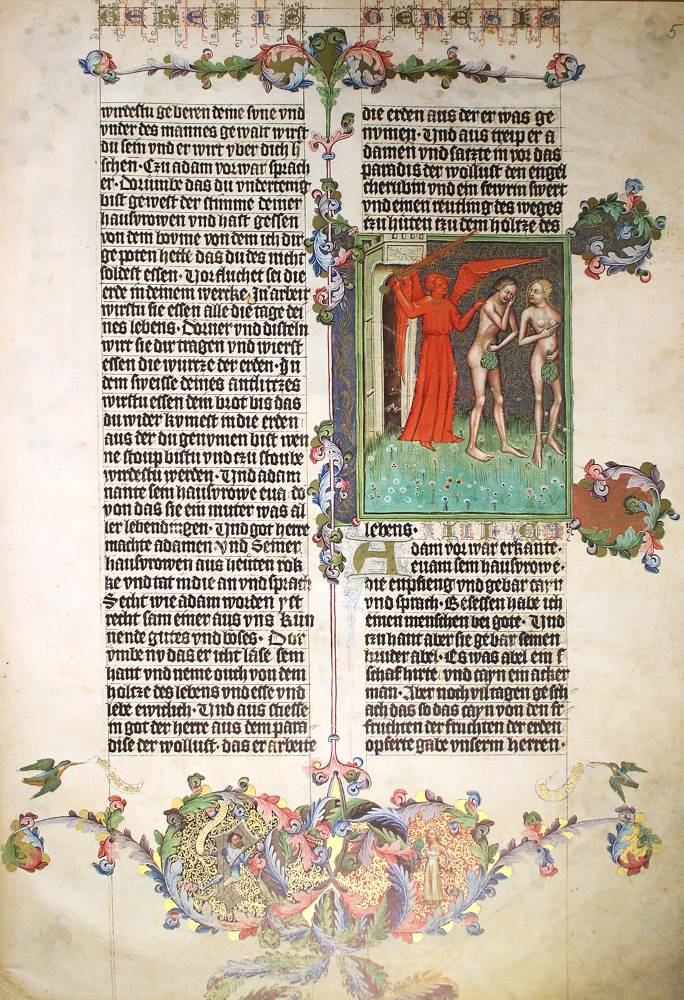 GENESIS GENESIS
5
wirdestu geberen deine sune vnd
vnder des mannes gewalt wirst
du sein vnd er wirt vber dich h
schen · Czu adam vorwar sprach
er · Dorumbe das du vndertenig
bist gewest der stimme deiner
hausvrowen vnd hast gessen
von dem boyme von dem ich dir
ge poten hette das du des nicht
soldest essen · Vorfluchet sei die
erde in deinem wercke · In arbeit
wirstu sie essen alle die tage dei
nes lebens · Dorner vnd disteln
wirt sie dir tragen vnd wierst
essen die wurtze der erden · In
dem sweisse deines antlutzes
wirstu essen dem brot bis das
du wider kvmest in die erden
aus der du genvmen bist wen
ne stoup bistu vnd czu stoube
wirdestu werden · Vnd adam
nante sein hausvrowe eua do
von das sie ein muter was al
ler lebendingen · Vnd got herre
machte adamen vnd Seiner
hausvrowen aus heuten rok
ke vnd tat in die an vnd sprach
Secht wie adam worden yst
recht sam einer aus vns kun
nende gutes vnd böses · Dor
vmbe nv das er icht lase sein
hant vnd neme ouch von dem
holtze des lebens vnd esse vnd
lebe ewiclich · Vnd aus liesse
in got der herre aus dem para
dise der wollust · das er arbeite
die erden aus der er was ge
nvmen · Vnd aus treip er a
damen vnd satzte in vor das
paradis der wollust den engel
cherubin vnd ein fewrin swert
vnd einen reutling des weges
czu huten czu dem holtze des
lebens · IIII
Adam vorwar erkante
euam sein hausvrowe ·
die enpfieng vnd gebar cayn
vnd sprach · Besessen habe ich
einen menschen bei gote · Vnd
czu hant aber sie gebar seinen
bruder abel · Es was abel ein
schafhirte vnd cayn ein acker
man · Aber noch vil tagen gesch
ach das so das cayn von den fr
fruchten der fruchten der erden
opferte gabe vnserm herren ·